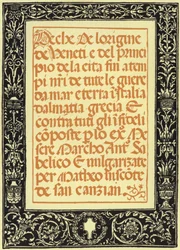 Deche De lorigine
De Veneti e del princi
pio de la cita fin a tem
pi nri de tute le guere
da mar e terra Italia
dalmatia grecia &
contra tuti gli ifideli
cōposte p lo ex Me
sere Marcho Ant. Sa
belico & vulgarizate
per Matheo viscōte
de san canzian.